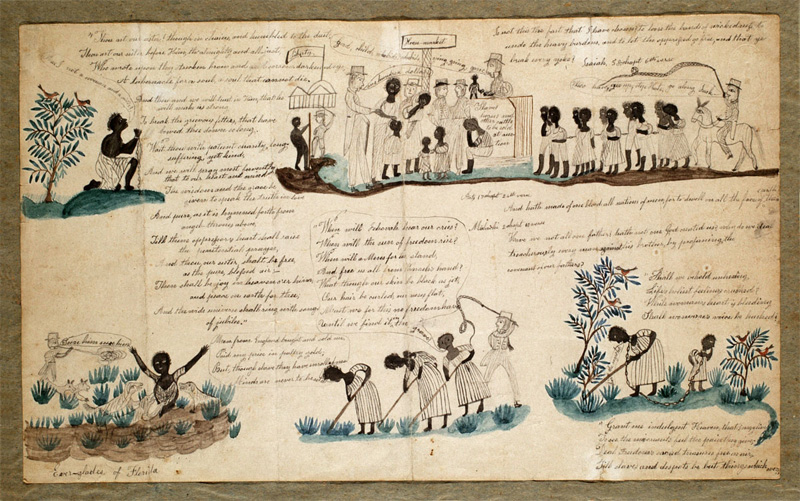 Thou art our sister! though in chains, and humbled to the dust,
Thou art our sister before Him, the almighty and all just,
Who wrote upon thy broken brow and
A tabernacle for a soul, a soul that cannot die.
Am I not a woman and a sister
And thou and ye will lead in Him, that he
will make us strong
To break the grievous fetters, that have
bowed thee down so long.
Wait thou with patient charity, long-
suffering, yet kind,
And we will pray most fervently
that to
The wisdom and the grace be
given to speak the truth in love
And pure, as it is hymned forth from
angel thrones above,
Till thine oppressor's heart shall raise
the
And thou, our sister shalt be free
as the pure, blessed air.
There shall be joy in heaven over him
and peace on earth for thee,
And the wide universe shall ring with songs
of jubilee."
Charity
God, child,
Horse-market
going going gone
dollars
Human
horses and
other cattle
to be sold
at auc-
tion
Is not this the fast that I have chosen? to loose the bands of wickedness, to
undo the heavy burdens, and to let the oppressed go free, and that ye
break every yoke?
Isaiah 58 chapt 6 verse
my
go along
Acts 17 chapt 26 verse
And hath made of one blood all nations of men for to dwell on all the face of the earth
Malachi 2 chapt 10 verse
Have we not all one father? hath not one God created us? why do we deal
treacherously every man against his brother, by profaning the
covenant of our fathers?
"When will Jehovah hear our cries?
When will the sun of freedom rise?
When will a Moses for us stand,
And free us all from Pharaoh's hand?
What though our skin be black as jet,
Our hair be curled, our noses flat,
Must we for this no freedom have
Until we find it in the grave?
"Shall we behold unheeding,
Life's holiest feelings crushed?
While woman's heart is bleeding
Shall woman's voice be hushed?
Men from England bought and sold me,
Paid my price in paltry gold,
But, though slave they have
Minds are never to be
Grant us indulgent Heaven, that
To see the
Till slaves and despots be but things which were
Ever-glades of Florida